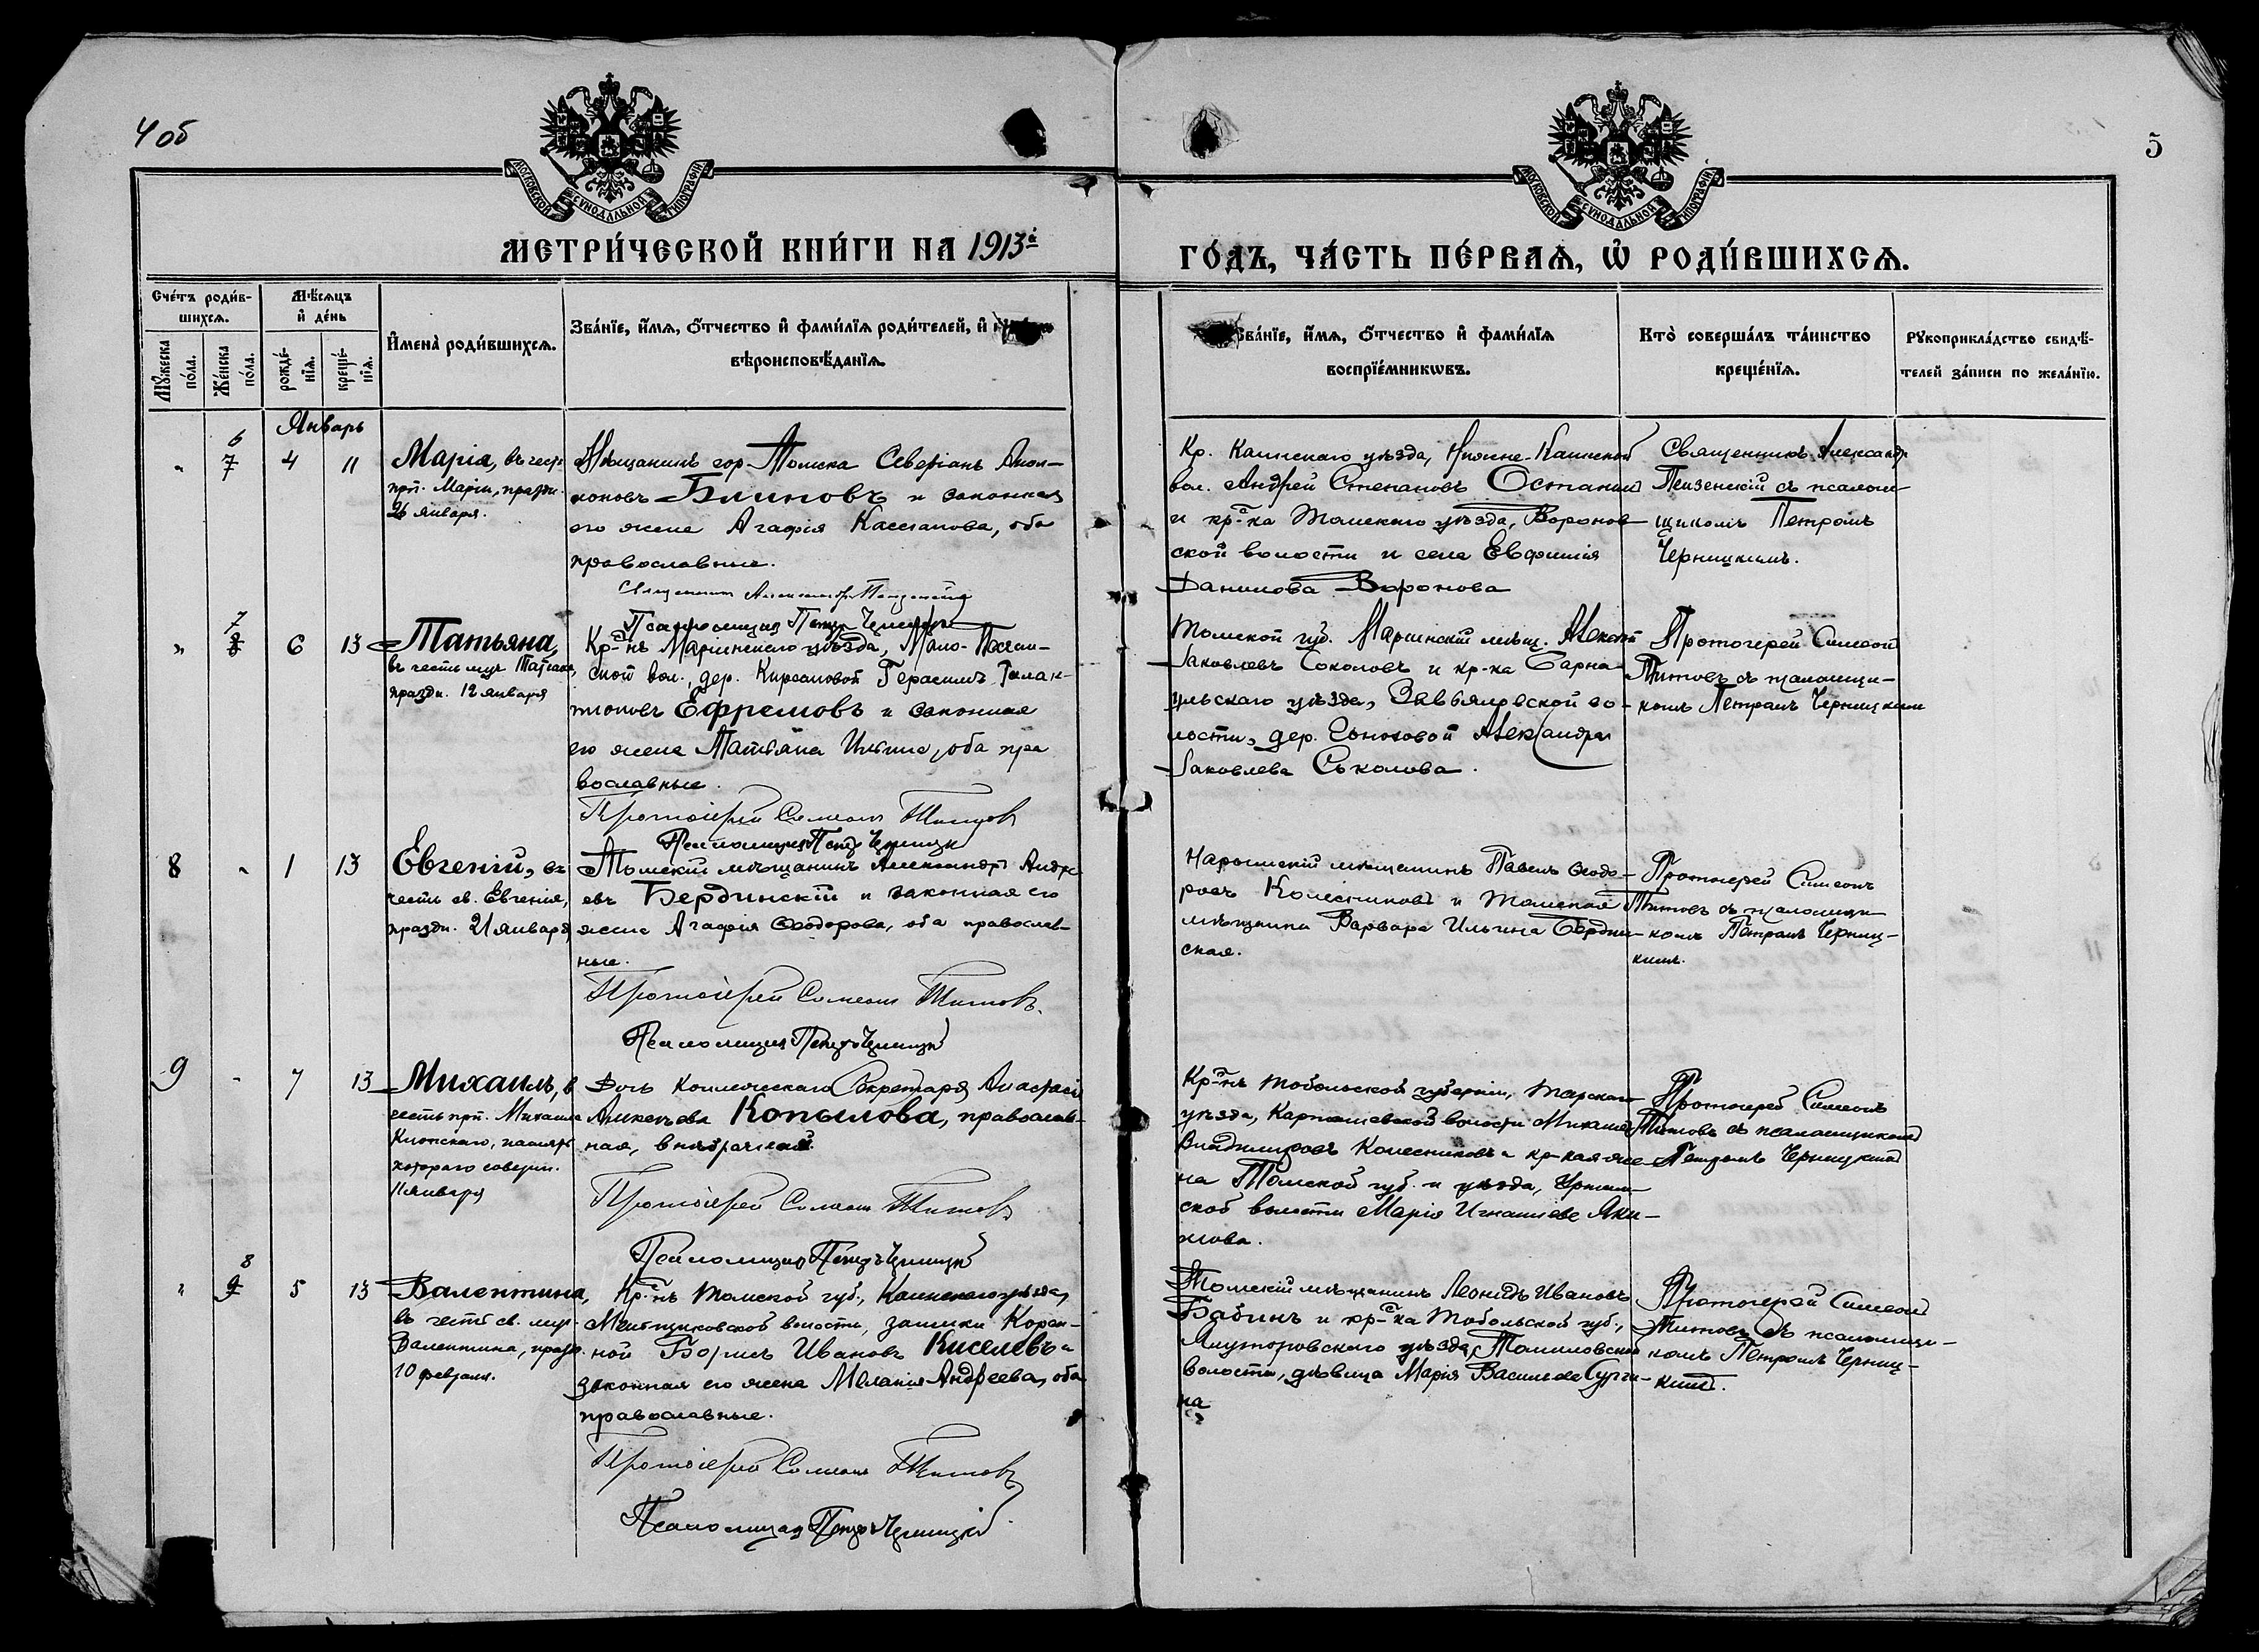 4 об
5
МОСКОВСКОЙ СѴНОДАЛЬНОЙ ТИПОГРАФІИ
МОСКОВСКОЙ СѴНОДАЛЬНОЙ ТИПОГРАФІИ
МЕТРИ́ЧЕСКОЙ КНИ́ГИ НА 1913й
ГО́ДЪ, ЧА́СТЬ ПЕ́РВАѦ, Ѡ҆ РОДИ́ВШИХСѦ.
Сче́тъ роди́в-
шихсѧ.
Мѣ́сѧцъ
и҆ де́нь
Мꙋ́жеска по́ла.
Же́нска по́ла.
рожде́-
нїѧ.
креще́-
нїѧ.
И҆мена̀ роди́вшихсѧ.
Зва́нїе, и҆́мѧ, ѻ҆́тчество и҆ фами́лїѧ роди́телей, и҆
вѣроисповѣ́данїѧ.
Зва́нїе, и҆́мѧ, ѻ҆́тчество и҆ фами́лїѧ
воспрїе́мникѡвъ.
Кто̀ соверша́лъ та́инство
креще́нїѧ.
Рꙋкоприкла́дство свидѣ́-
телей за́писи по жела́нїю.
Январь
6
" 7 4 11
Марія, въ чест
прп. Маріи, праздн.
26 января.
Мѣщанинъ гор. Томска Северіанъ
Блиновъ и законная
его жена Агафія Кассіанова, оба
православные.
Священникъ Александръ Пензенскій
Псаломщикъ Петръ Черницкій
Кр. Каинскаго уѣзда, Нижне-Каинской
вол. Андрей Степановъ Останинъ
и кр-ка Томскаго уѣзда, Воронов-
ской волости и села Евфимія
Данилова Воронова
Священникъ Александръ
Пензенскій съ псалом-
щикомъ Петромъ
Черницкимъ.
7
" 8 6 13
Татьяна,
въ честь муч. Татіаны,
праздн. 12 января
Кр-нъ Маріинскаго уѣзда, Мало-Песчан-
ской вол., дер. Кирсановой Герасимъ Галак-
тіоновъ Ефремовъ и законная
его жена Татьяна Ильина, оба пра
вославные.
Протоіерей Симеонъ Титовъ
Псаломщикъ Петръ Черницкій
Томской губ. Маріинскій мѣщ. Алексѣй
Іаковлевъ Соколовъ и кр-ка Барна-
ульскаго уѣзда, во-
лости, дер. Александра
Іаковлева Соколова.
Протоіерей Симеонъ
Титовъ съ псаломщи-
комъ Петромъ Черницкимъ
8 " 1 13
Евгеній, въ
честь св. Евгенія,
праздн. 21 января
Томскій мѣщанинъ Александръ Андре
евъ Бердинскій и законная его
жена Агафія Ѳеодорова, оба православ-
ные.
Протоіерей Симеонъ Титовъ.
Псаломщикъ Петръ Черницкій
Нарымскій мѣщанинъ Павелъ Ѳеодо-
ровъ Колесниковъ и Томская
мѣщанка Варвара Ильина Бердин-
ская.
Протоіерей Симеонъ
Титовъ съ псаломщи-
комъ Петромъ Черниц-
кимъ.
9 " 7 13
Михаилъ, в
честь прп. Михаила
Клопскаго, память
котораго соверш.
11 января
Дочь Коллежскаго Секретаря Анастасія
Алексѣева Копылова, православ-
ная, внѣбрачный.
Протоіерей Симеонъ Титовъ
Псаломщикъ Петръ Черницкій
Кр-нъ Тобольской губерніи, Тарскаго
уѣзда, волости Михаилъ
Владимировъ Колесниковъ и кр-кая же-
на Томской губ. и уѣзда,
ской волости Марія Игнатіева Аки-
мова.
Протоіерей Симеонъ
Титовъ съ псаломщикомъ
Петромъ Черницкимъ
8
" 9 5 13
Валентина,
въ честь св. муч.
Валентина, празд.
10 февраля.
Кр-нъ Томской губ., Каинскаго уѣзда,
волости, заимки
ной Борисъ Ивановъ Киселевъ и
законная его жена Меланія Андреева, оба
православные.
Протоіерей Симеонъ Титовъ
Псаломщикъ Петръ Черницкій
Томскій мѣщанинъ Леонидъ Ивановъ
Бабинъ и кр-ка Тобольской губ.,
Ялуторовскаго уѣзда, Томиловской
волости, дѣвица Марія Васильева Сурги-
на
Протоіерей Симеонъ
Титовъ съ псаломщи-
комъ Петромъ Черниц-
кимъ.